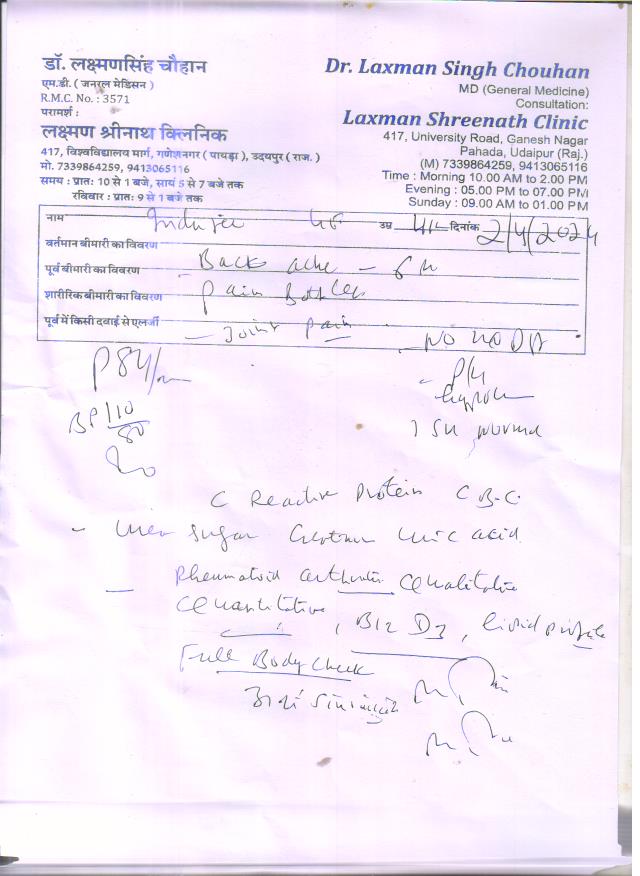 डॉ. लक्ष्मणसिंह चौहान
एम.डी. ( जनरल मेडिसन )
R.M.C. No. : 3571
परामर्श :
लक्ष्मण श्रीनाथ क्लिनिक
417, विश्वविद्यालय मार्ग, गणेशनगर ( पायड़ा ), उदयपुर ( राज. )
मो. 7339864259, 9413065116
समय : प्रातः 10 से 1 बजे, सायं 5 से 7 बजे तक
रविवार : प्रातः 9 से 1 बजे तक
Dr. Laxman Singh Chouhan
MD (General Medicine)
Consultation:
Laxman Shreenath Clinic
417, University Road, Ganesh Nagar
Pahada, Udaipur (Raj.)
(M) 7339864259, 9413065116
Time : Morning 10.00 AM to 2.00 PM
Evening : 05.00 PM to 07.00 PM
Sunday : 09.00 AM to 01.00 PM
नाम उम्र दिनांक 2/4/2024
वर्तमान बीमारी का विवरण
पूर्व बीमारी का विवरण Back ache - 6
शारीरिक बीमारी का विवरण Pain
पूर्व में किसी दवाई से एलर्जी - Joint Pain
P 84/m
BP 110/80
normal
C Reactive Protein CBC
- Urea Sugar Uric acid
Rheumatoid Qualitative
Quantitative, B12 D3, Lipid profile
Full Body Check